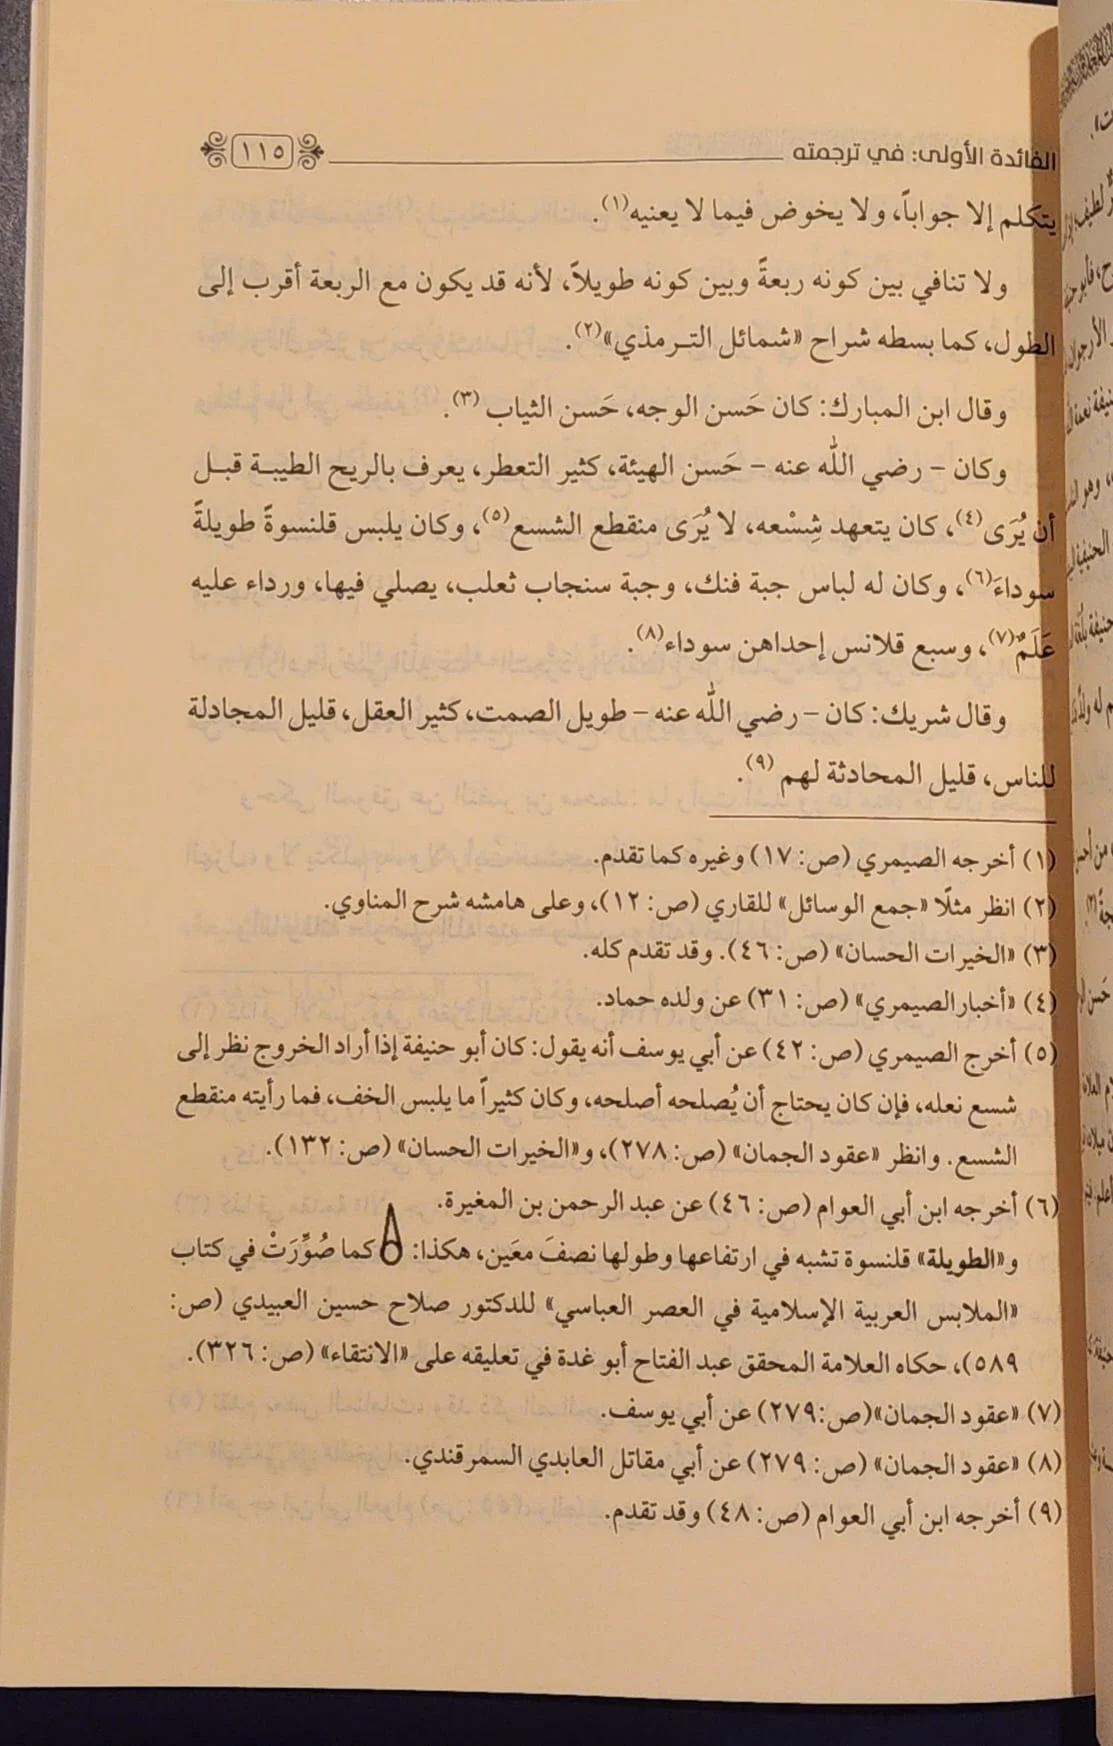 الفائدة الأولى: في ترجمته ١١٥
يتكلم إلا جواباً، ولا يخوض فيما لا يعنيه(١).
ولا تنافي بين كونه ربعةً وبين كونه طويلاً، لأنه قد يكون مع الربعة أقرب إلى
الطول، كما بسطه شراح «شمائل الترمذي»(٢).
وقال ابن المبارك: كان حَسن الوجه، حَسن الثياب (٣).
وكان – رضي الله عنه – حَسن الهيئة، كثير التعطر، يعرف بالريح الطيبة قبل
أن يُرَى(٤)، كان يتعهد شِسْعه، لا يُرَى منقطع الشسع(٥)، وكان يلبس قلنسوةً طويلةً
سوداءَ(٦)، وكان له لباس جبة فنك، وجبة سنجاب ثعلب، يصلي فيها، ورداء عليه
عَلَمٌ(٧)، وسبع قلانس إحداهن سوداء(٨).
وقال شريك: كان – رضي الله عنه – طويل الصمت، كثير العقل، قليل المجادلة
للناس، قليل المحادثة لهم (٩).
(١) أخرجه الصيمري (ص: ١٧) وغيره كما تقدم.
(٢) انظر مثلًا «جمع الوسائل» للقاري (ص: ١٢)، وعلى هامشه شرح المناوي.
(٣) «الخيرات الحسان» (ص: ٤٦). وقد تقدم كله.
(٤) «أخبار الصيمري» (ص: ٣١) عن ولده حماد.
(٥) أخرج الصيمري (ص: ٤٢) عن أبي يوسف أنه يقول: كان أبو حنيفة إذا أراد الخروج نظر إلى
شسع نعله، فإن كان يحتاج أن يُصلحه أصلحه، وكان كثيراً ما يلبس الخف، فما رأيته منقطع
الشسع. وانظر «عقود الجمان» (ص: ٢٧٨)، و«الخيرات الحسان» (ص: ١٣٢).
(٦) أخرجه ابن أبي العوام (ص: ٤٦) عن عبد الرحمن بن المغيرة.
و«الطويلة» قلنسوة تشبه في ارتفاعها وطولها نصفَ معَين، هكذا: كما صُوِّرَتْ في كتاب
«الملابس العربية الإسلامية في العصر العباسي» للدكتور صلاح حسين العبيدي (ص:
٥٨٩)، حكاه العلامة المحقق عبد الفتاح أبو غدة في تعليقه على «الانتقاء» (ص: ٣٢٦).
(٧) «عقود الجمان»(ص: ٢٧٩) عن أبي يوسف.
(٨) «عقود الجمان» (ص: ٢٧٩) عن أبي مقاتل العابدي السمرقندي.
(٩) أخرجه ابن أبي العوام (ص: ٤٨) وقد تقدم.